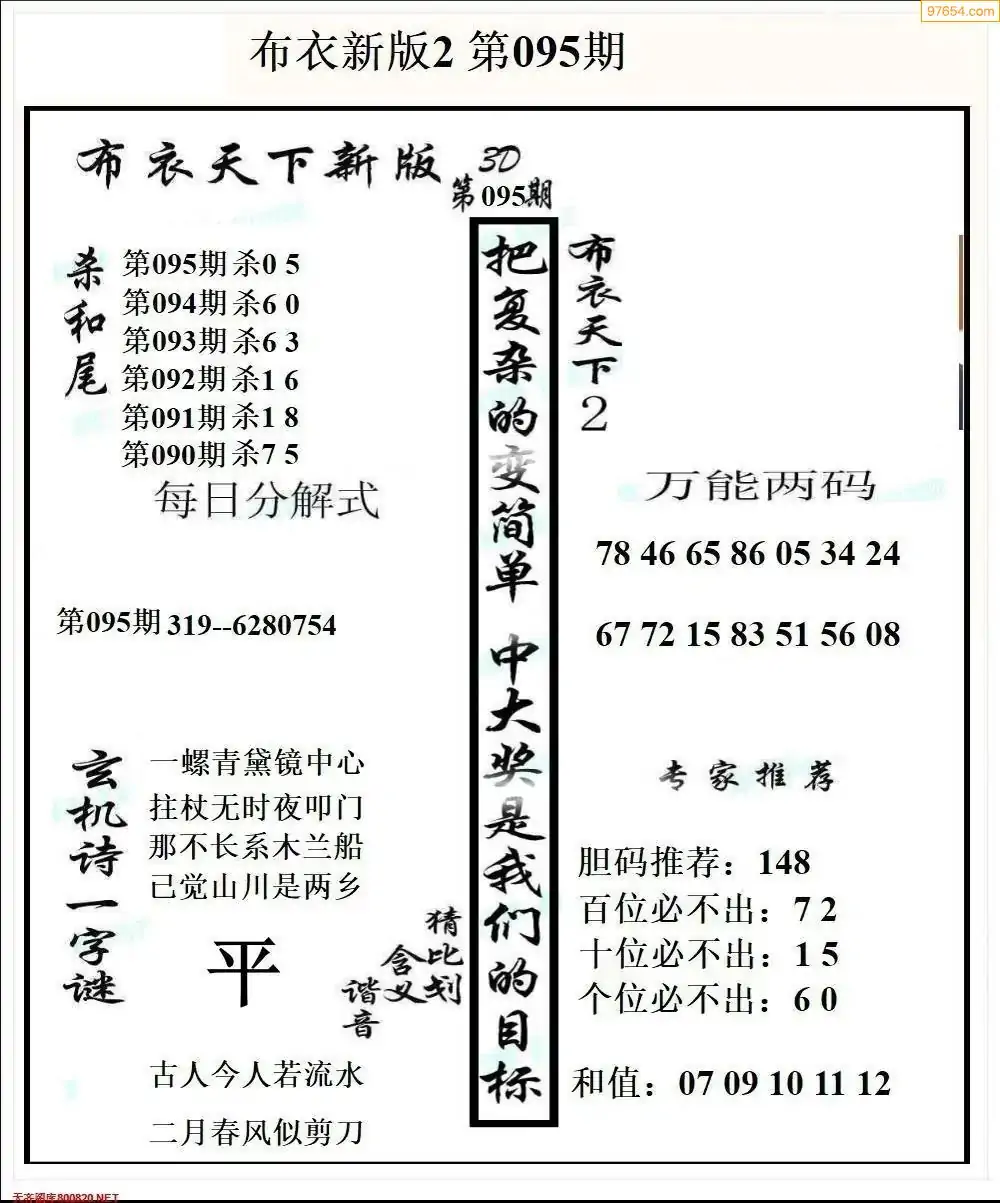 97654.com
布衣新版2 第095期
布衣天下新版 3D
第095期
杀和尾
第095期 杀0 5
第094期 杀6 0
第093期 杀6 3
第092期 杀1 6
第091期 杀1 8
第090期 杀7 5
每日分解式
第095期 319--6280754
玄机诗一字谜
一螺青黛镜中心
拄杖无时夜叩门
那不长系木兰船
己觉山川是两乡
平
猜比划
含义
谐音
古人今人若流水
二月春风似剪刀
把复杂的变简单 中大奖是我们的目标
布衣天下2
万能两码
78 46 65 86 05 34 24
67 72 15 83 51 56 08
专家推荐
胆码推荐：148
百位必不出：7 2
十位必不出：1 5
个位必不出：6 0
和值：07 09 10 11 12
天齐图库800820.NET